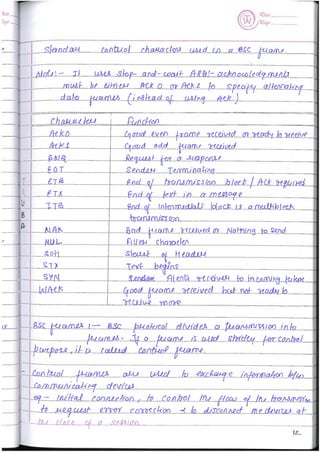 Standard control characters used in a BSC frame
Note:- It uses stop-and-wait ARQ:- acknowledgements
must be either ACK 0 or ACK 1 to specify alternating
data frames (instead of using ACK.)
Characters Function
Ack0 Good even frame received or ready to receive
Ack1 Good odd frame received
ENQ Request for a response
EOT Sender Terminating
ETB End of transmission block / Ack required
ETX End of text in a message
ITB End of Intermediate block in a multiblock
transmission
NAK Bad frame received or Nothing to send
NUL Filler character
SOH Start of Header
STX Text begins
SYN Alerts receiver to incoming frame
WAck Good frame received but not ready to
receive more
BSC frames :- BSC protocol divides a transmission into
frames. If a frame is used strictly for control
purpose, it is called control frame.
Control frames are used to exchange information b/w
communicating devices.
eg - initial connection, to control the flow of the transmission
to request error correction & to disconnect the devices at
the close of a session